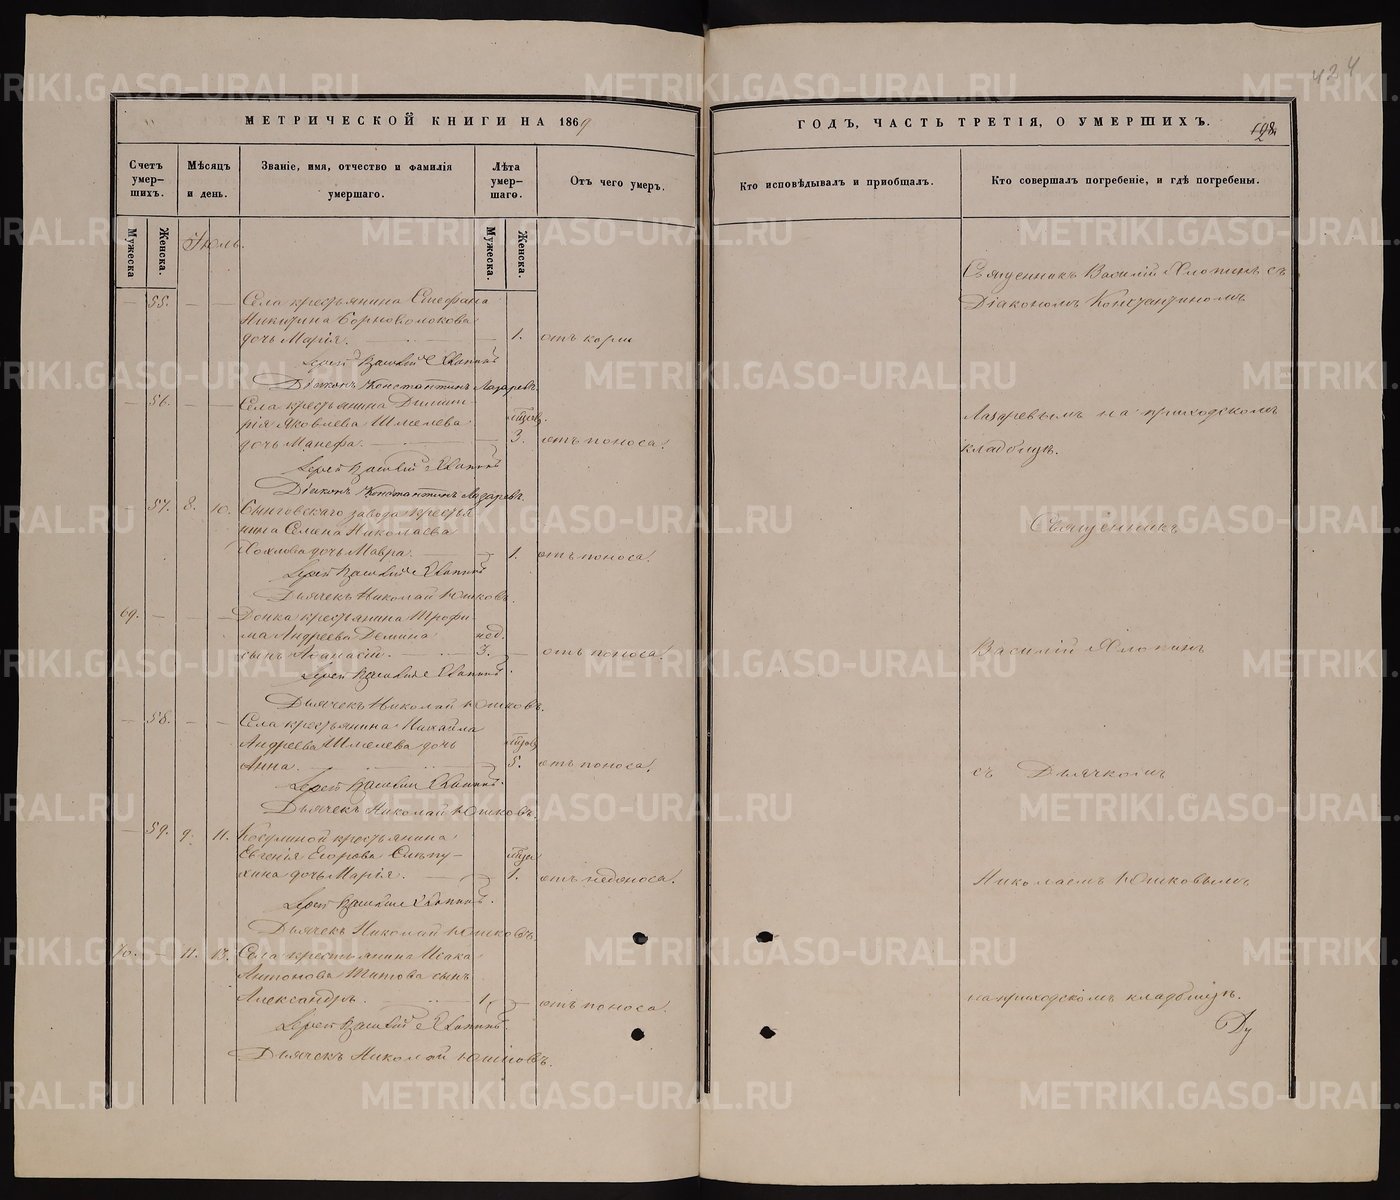 424
МЕТРИЧЕСКОЙ КНИГИ НА 1869
ГОДЪ, ЧАСТЬ ТРЕТІЯ, О УМЕРШИХЪ.
Счетъ умер-шихъ.
Мѣсяцъ и день.
Званіе, имя, отчество и фамилія умершаго.
Лѣта умер-шаго.
Отъ чего умеръ.
Кто исповѣдывалъ и приобщалъ.
Кто совершалъ погребеніе, и гдѣ погребены.
Мужеска
Женска.
Мужеска.
Женска.
Іюль.
55. Села крестьянина Стефана
Никитина Борноволокова
дочь Марія. 1. отъ кори
Іерей Василій Хлопинъ
Діаконъ Константинъ Лазаревъ
56. Села крестьянина Дими-
рія Яковлева Шмелева
дочь Манефа. 3. отъ поноса.
Іерей Василій Хлопинъ
Діаконъ Константинъ Лазаревъ
57. 8. 10. завода крестья
нина Николаева
Хохлова дочь Мавра. 1. отъ поноса.
Іерей Василій Хлопинъ
Дьячекъ Николай Юшковъ.
69. крестьянина Трофи
ма Андреева Демина нед.
сынъ Афанасій. 3. отъ поноса.
Іерей Василій Хлопинъ
Дьячекъ Николай Юшковъ.
58. Села крестьянина Михайла
Андреева Шмелева дочь
Анна. 5. отъ поноса.
Іерей Василій Хлопинъ
Дьячекъ Николай Юшковъ.
59. 9. 11. крестьянина
Евгенія Егорова Слѣпу-
хина дочь Марія. 1. отъ поноса.
Іерей Василій Хлопинъ.
Дьячекъ Николай Юшковъ.
70. 11. 13. Села крестьянина Исака
Антонова Титова сынъ
Александръ. 1. отъ поноса.
Іерей Василій Хлопинъ.
Дьячекъ Николай Юшковъ.
Священникъ Василій Хлопинъ съ
Діакономъ Константиномъ
Лазаревымъ на приходскомъ
кладбищѣ.
Священникъ
Василій Хлопинъ
съ Дьячкомъ
Николаемъ Юшковымъ
на приходскомъ кладбищѣ.
METRIKI.GASO-URAL.RU